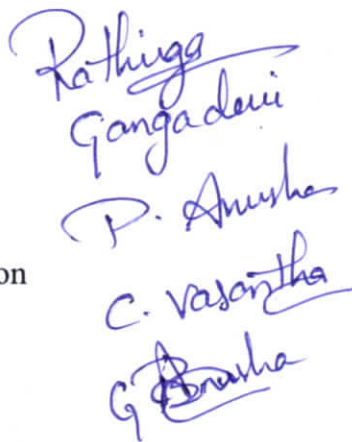 Rathiga
Gangadevi
P. Anusha
on
C. Vasantha
G